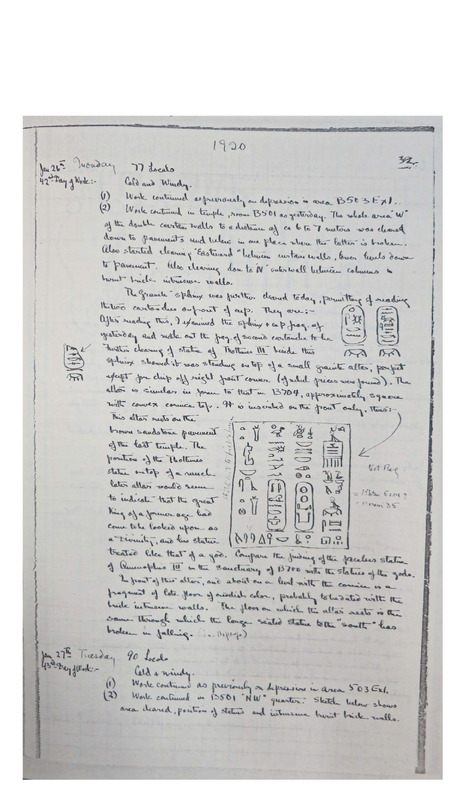 1920
32
Jan 26th Monday 77 Locals
42nd Day of Work:- Cold and Windy.
(1) Work continued as previously on depression in area B503 Ext.
(2) Work continued in temple, room B501 as yesterday. The whole area "W"
of the double curtain walls to a distance of ca 6 to 7 meters was cleared
down to pavement and below in one place where the latter is broken.
Also started clearing "Eastward" between curtain walls, from levels down
to pavement. Also clearing down to N outer wall between columns &
burnt brick intrusive walls.
The Granite sphinx was further cleared today, permitting of reading
the two cartouches on front of cap. They are:-
After reading this, I examined the sphinx cap frag. of
yesterday and made out the frag. of second cartouche to be
Further clearing of statue of Thothmes III beside this
sphinx showed it was standing on top of a small granite altar, perfect
except for chip off right front corner. (of which pieces were found). The
altar is similar in form to that in B704, approximately square
with convex cornice top. It is inscribed on the front only, thus:-
This altar rests on the
brown sandstone pavement
of the last temple. The
position of the Thothmes
statue on top of a much
later altar would seem
to indicate that the great
King of a former age had
come to be looked upon as
a Divinity, and his statue
treated like that of a god. Compare the finding of the priceless statue
of Amenophis III in the Sanctuary of B700 with the statues of the gods.
In front of this altar, and about on a level with the cornice is a
fragment of late floor of reddish color, probably to be dated with the
brick intrusive walls. The floor on which the altar rests is the
same through which the longer seated statue to the "south" has
broken in falling.
Jan 27th Tuesday 90 Locals
43rd Day of Work:- Cold & windy.
(1) Work continued as previously on depression in area 503 Ext.
(2) Work continued in B501 "NW" quarter: Sketch below shows
area cleared, position of statues and intrusive burnt brick walls.